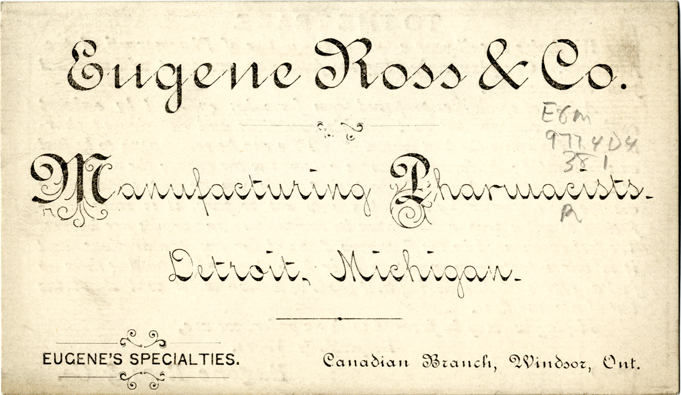 Eugene Ross & Co.
Manufacturing Pharmacists.
Detroit, Michigan.
EUGENE'S SPECIALTIES.
Canadian Branch, Windsor, Ont.
E&m
977.4 D4
38 1
R